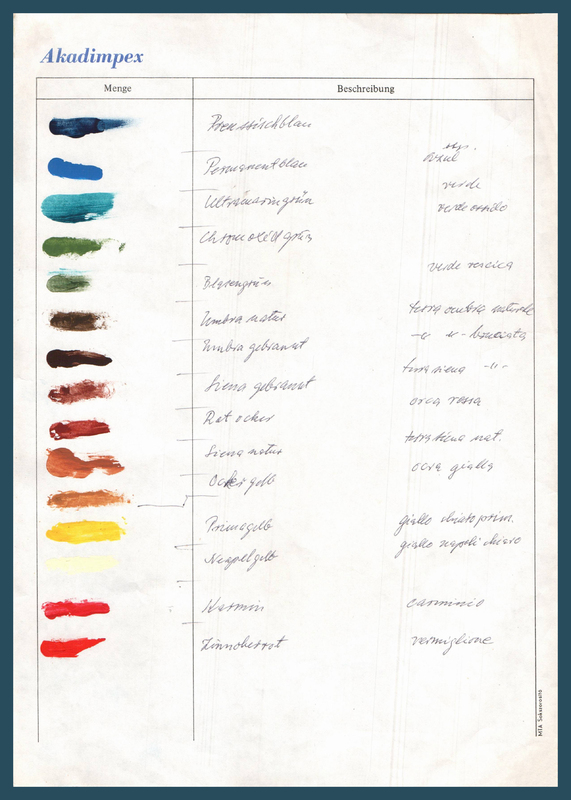 Akadimpex
Menge Beschreibung
Preussischblau
Permanentblau azul
verde
Ultramaringrün verde ossido
Chromoxidgrün
verde vescica
Blasengrün
Umbra natur terra ombra naturale
Umbra gebrannt -"- -"- bruciata
Siena gebrannt terra siena -"-
Rot ocker ocra rossa
Siena natur terra siena nat.
Ocker gelb ocra gialla
Primagelb giallo chiaro prim.
Neapelgelb giallo napoli chiaro
Karmin carminio
Zinnoberrot vermiglione
MTA Sokszorosító